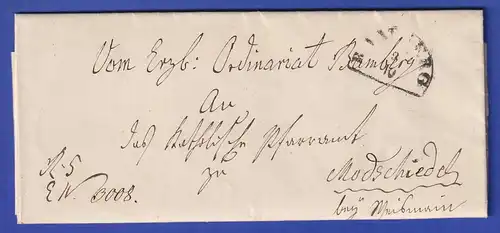 Vom Erzb: Ordinariat Bamberg
BAMBERG
An
das Katholische Pfarramt
zu
Modschiedel
bey Weismain
R. 5
E N. 3008.